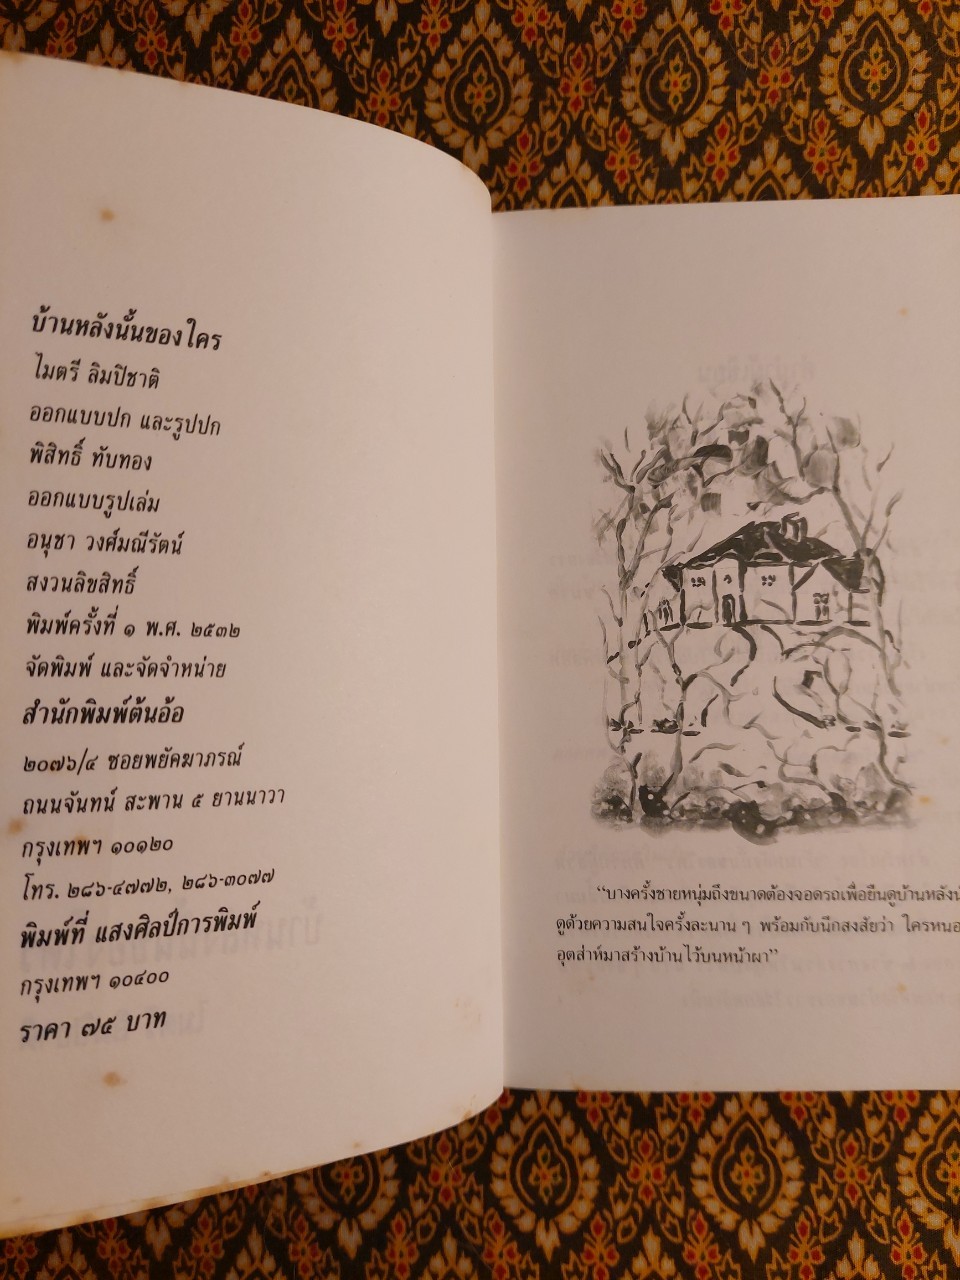 บ้านหลังนั้นของใคร
ไมตรี ลิมปิชาติ
ออกแบบปก และรูปปก
พิสิทธิ์ ทับทอง
ออกแบบรูปเล่ม
อนุชา วงศ์มณีรัตน์
สงวนลิขสิทธิ์
พิมพ์ครั้งที่ ๑ พ.ศ. ๒๕๓๒
จัดพิมพ์ และจัดจำหน่าย
สำนักพิมพ์ต้นอ้อ
๒๐๗๖/๔ ซอยพยัคฆาภรณ์
ถนนจันทน์ สะพาน ๕ ยานนาวา
กรุงเทพฯ ๑๐๑๒๐
โทร. ๒๘๖-๔๗๗๒, ๒๘๖-๓๐๗๗
พิมพ์ที่ แสงศิลป์การพิมพ์
กรุงเทพฯ ๑๐๔๐๐
ราคา ๗๕ บาท
“บางครั้งชายหนุ่มถึงขนาดต้องจอดรถเพื่อยืนดูบ้านหลัง
ดูด้วยความสนใจครั้งละนาน ๆ พร้อมกับนึกสงสัยว่า ใครหนอ
อุตส่าห์มาสร้างบ้านไว้บนหน้าผา”